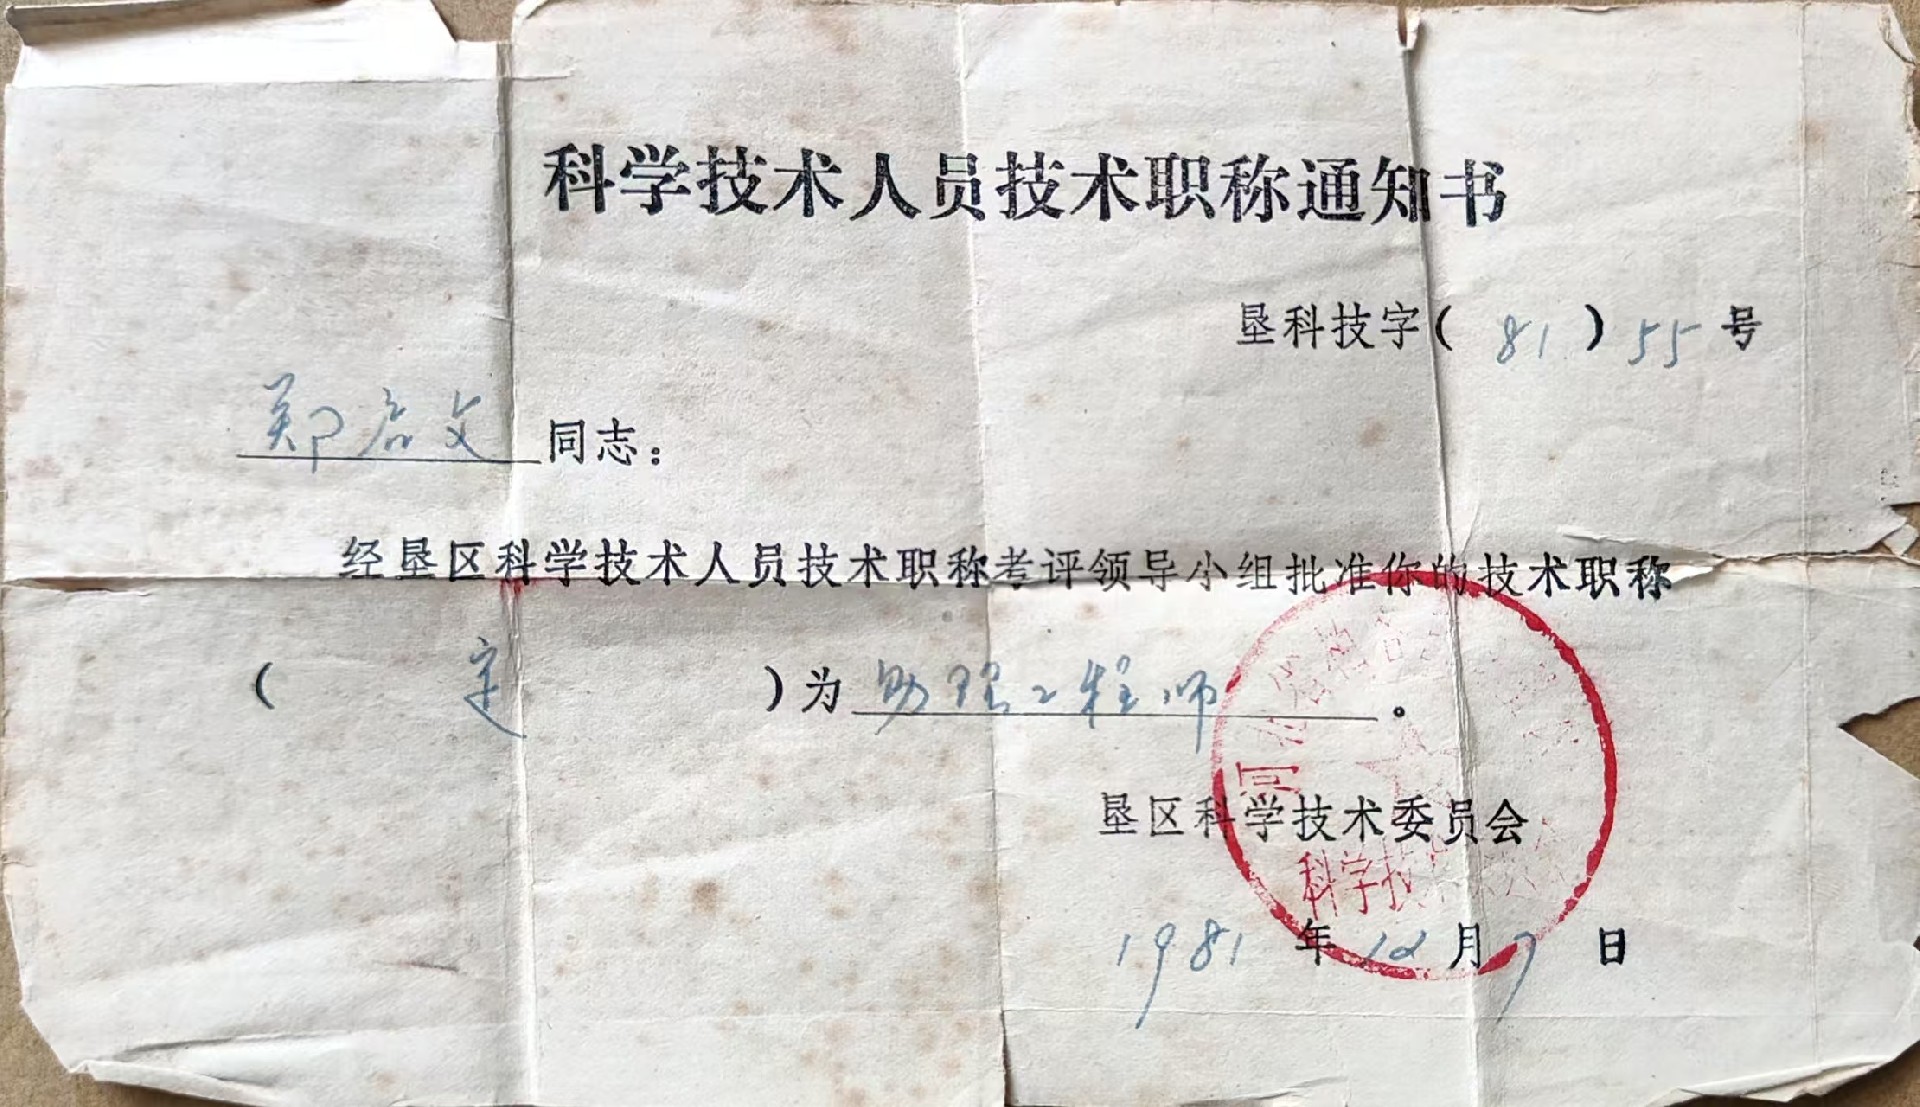 科学技术人员技术职称通知书
垦科技字(81)55号
郑启文同志：
经垦区科学技术人员技术职称考评领导小组批准你的技术职称
(定)为助理工程师。
垦区科学技术委员会
科学技
1981年12月7日